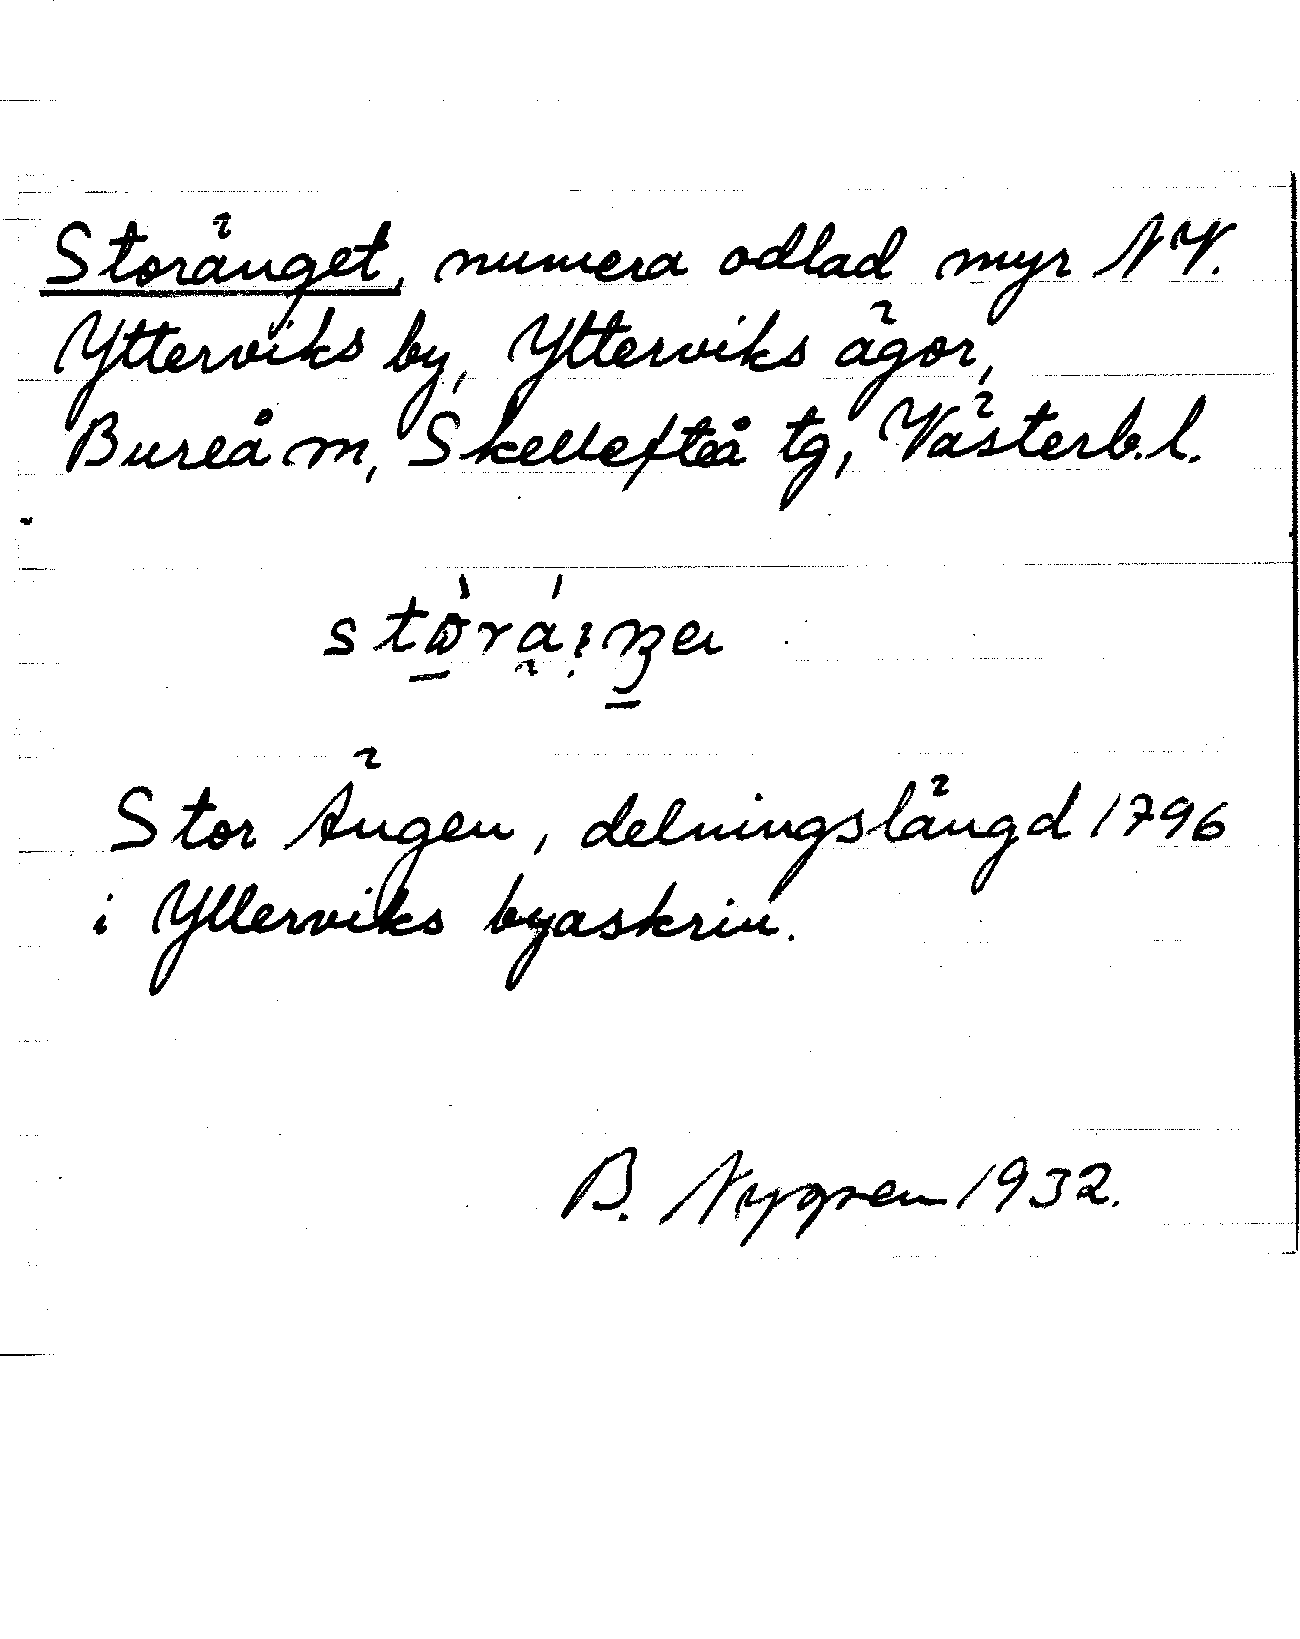 Storänget, numera odlad myr NV.
Ytterviks by, Ytterviks ägor,
Bureå m, Skellefteå tg, Västerb. l.
Stor Ängen, delningslängd 1796
i Ytterviks byaskrin.
B. Nygren 1932.